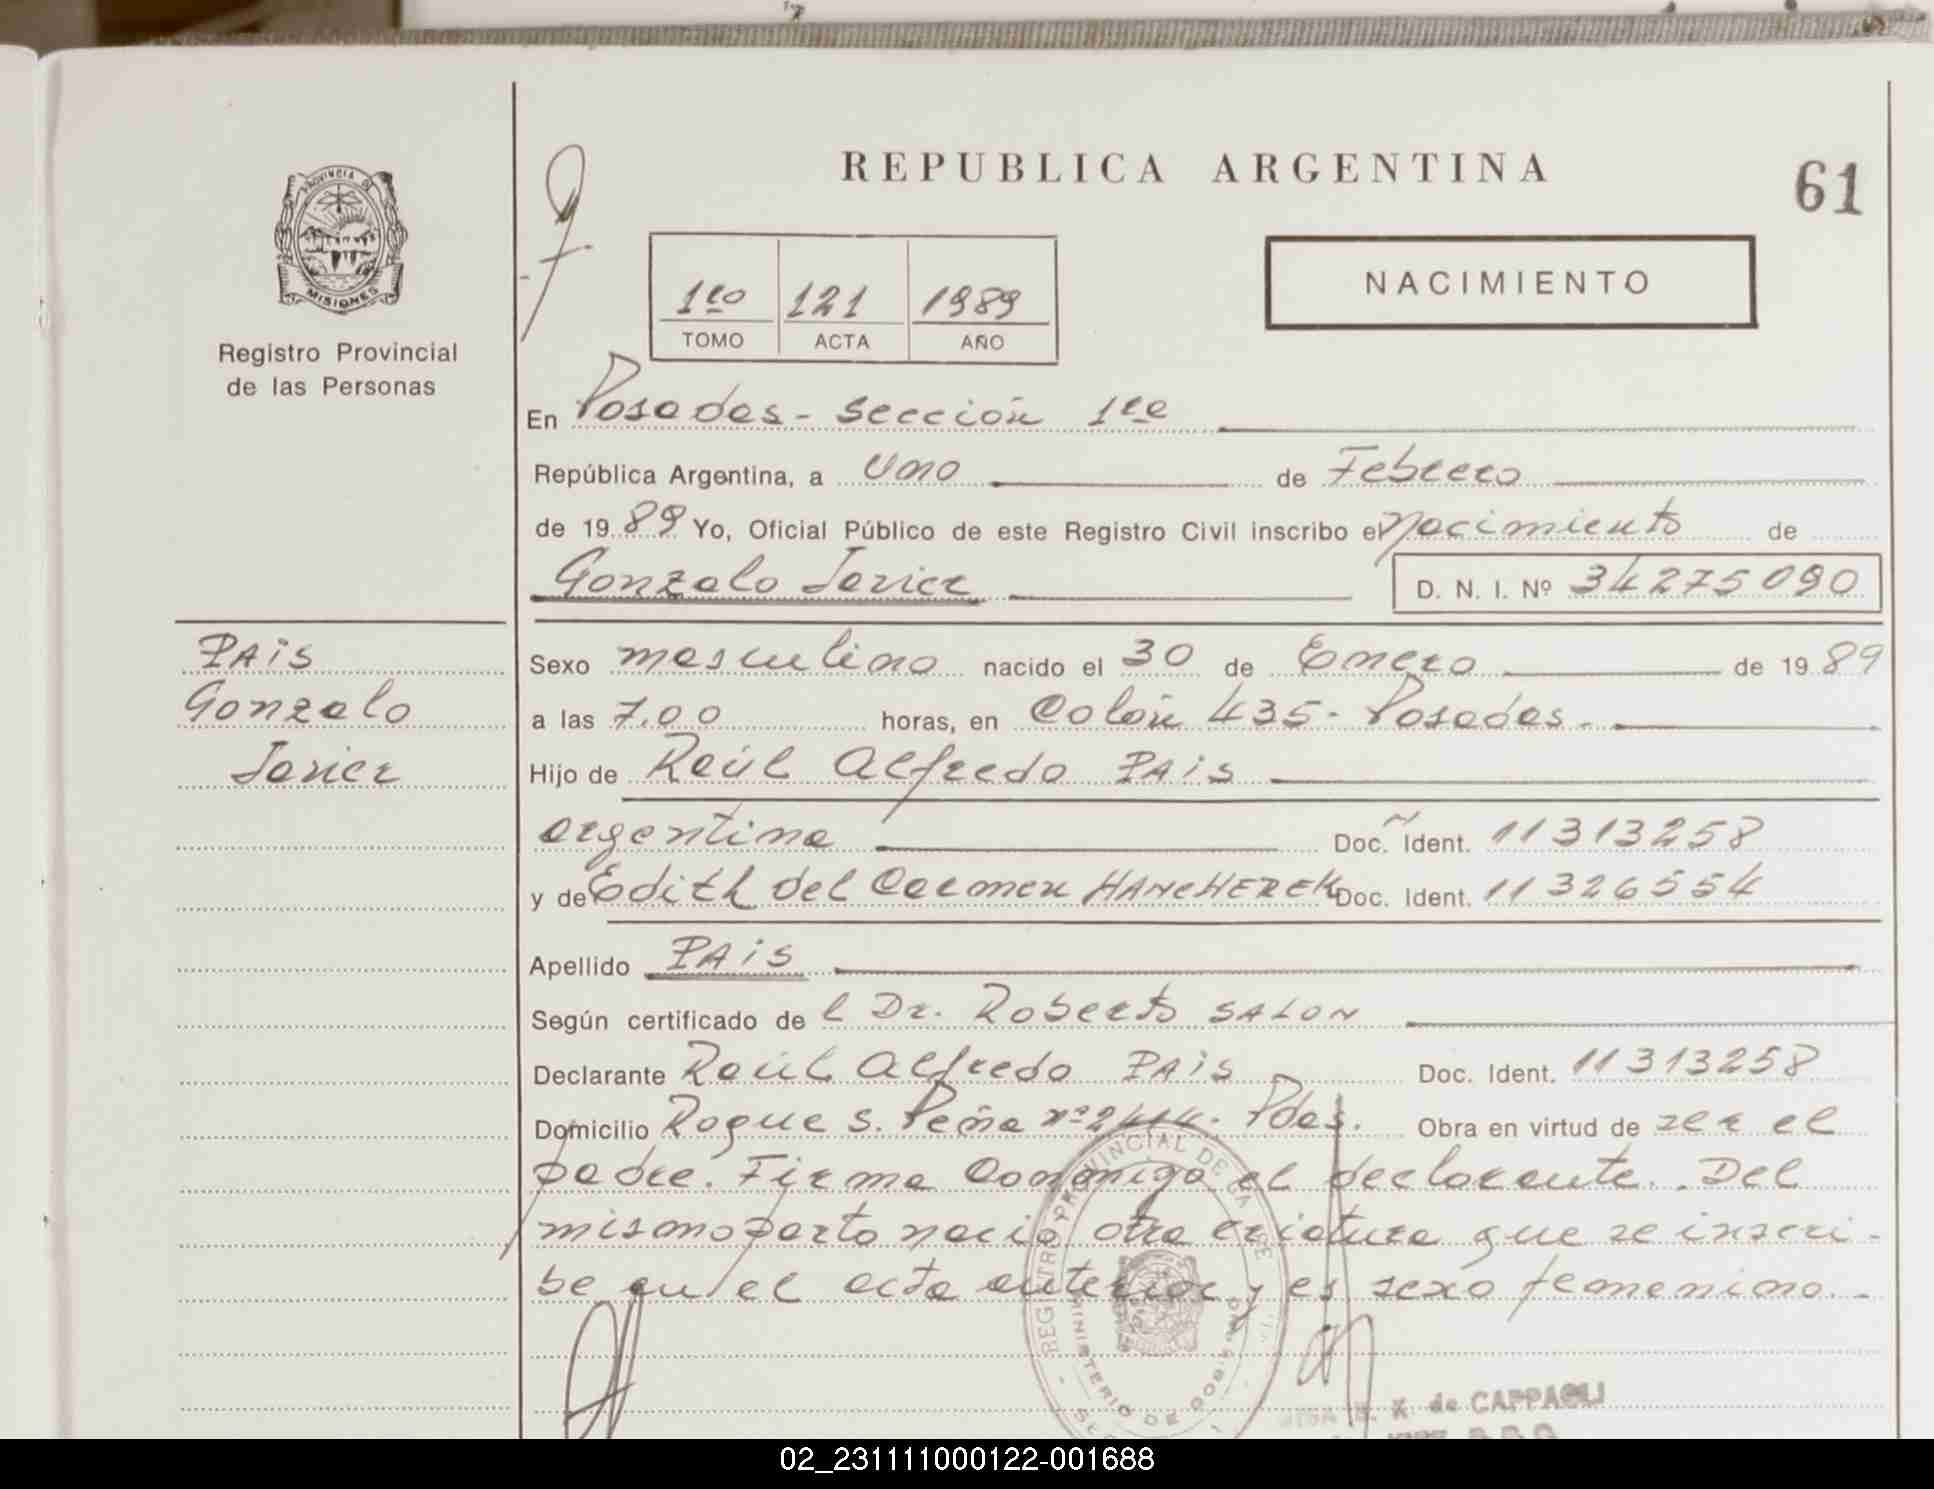 REPUBLICA ARGENTINA
61
PROVINCIA DE
MISIONES
Registro Provincial
de las Personas
1ro 121 1989
TOMO ACTA AÑO
NACIMIENTO
En Posadas - Sección 1ra
República Argentina, a Uno de Febrero
de 19 89 Yo, Oficial Público de este Registro Civil inscribo el nacimiento de
Gonzalo Javier D. N. I. Nº 34275090
PAiS
Gonzalo
Javier
Sexo masculino nacido el 30 de Enero de 19 89
a las 7.00 horas, en Colón 435 - Posadas.
Hijo de Raúl Alfredo PAiS
argentina Doc. Ident. 11313258
y de Edith del Carmen HANCHEREK Doc. Ident. 11326554
Apellido PAiS
Según certificado de l Dr. Roberto SALON
Declarante Raúl Alfredo PAiS Doc. Ident. 11313258
Domicilio Roque S. Peña nº 2414. Pdas. Obra en virtud de ser el
padre. Firma conmigo el declarante. Del
mismo parto nació otra criatura que se inscri-
be en el acta anterior y es sexo femenino.-
REGISTRO PROVINCIAL DE
MINISTERIO DE GOBIERNO
de CAPPAGLI
02_231111000122-001688